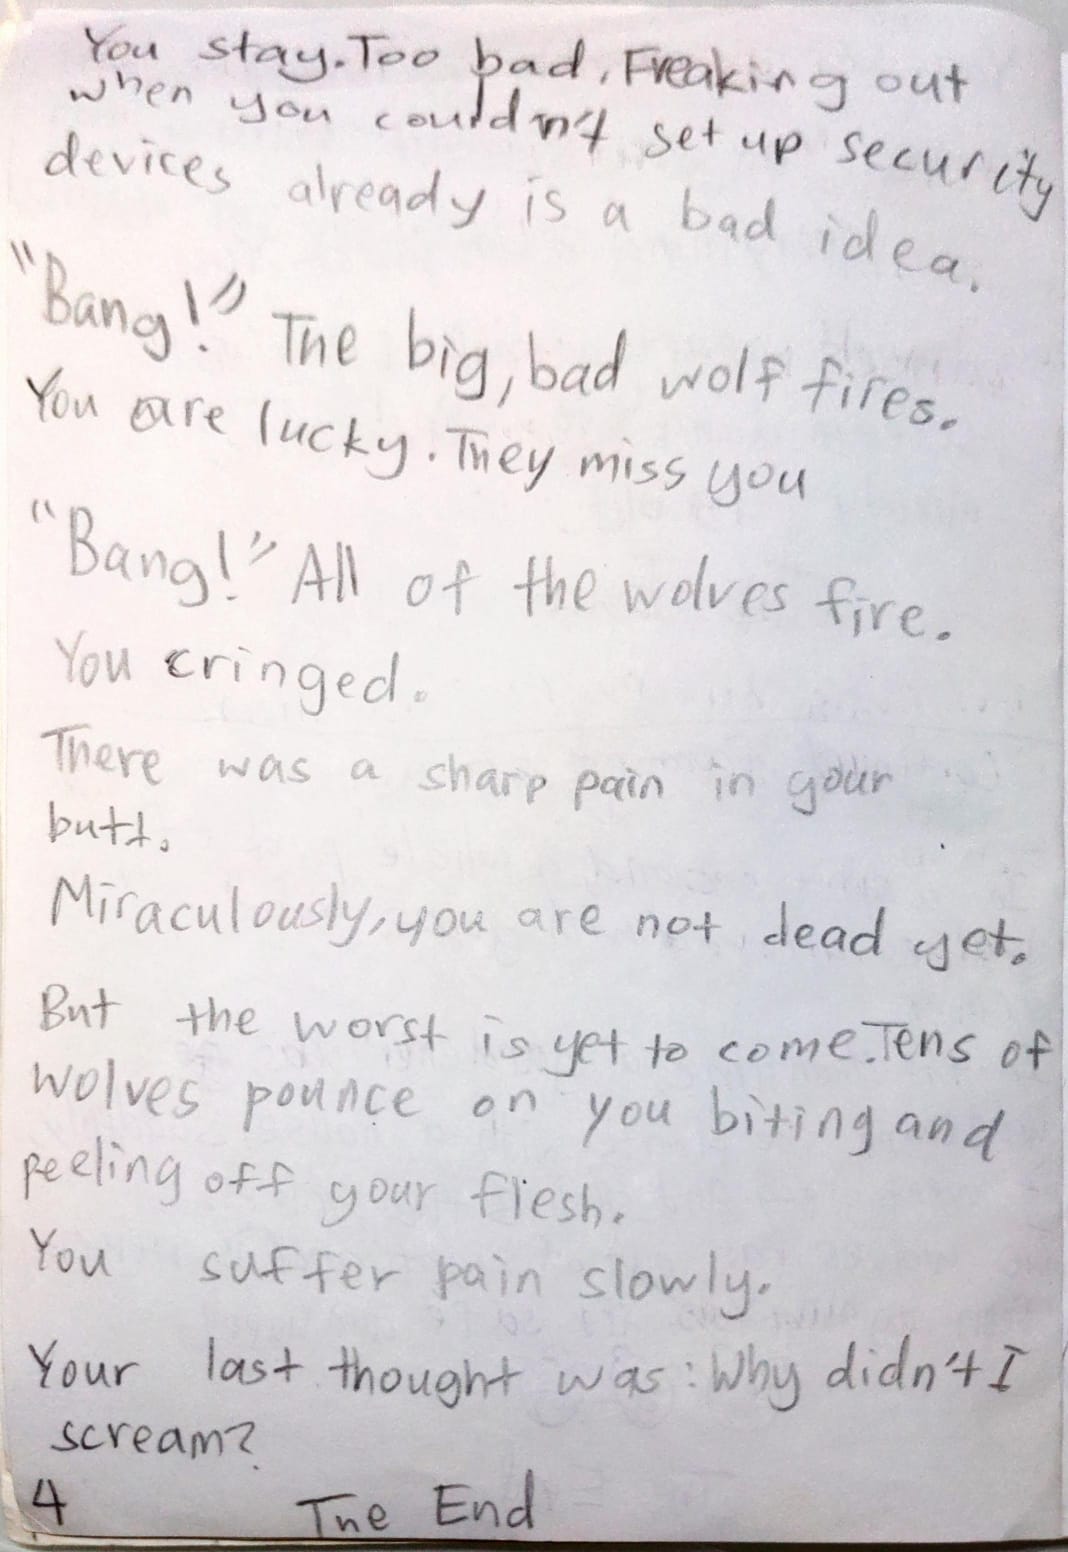 You stay. Too bad. Freaking out
when you couldn't set up security
devices already is a bad idea.
"Bang!" The big, bad wolf fires.
You are lucky. They miss you
"Bang!" All of the wolves fire.
You cringed.
There was a sharp pain in your
butt.
Miraculously, you are not dead yet.
But the worst is yet to come. Tens of
wolves pounce on you biting and
peeling off your flesh.
You suffer pain slowly.
Your last thought was: Why didn't I
scream?
4 The End